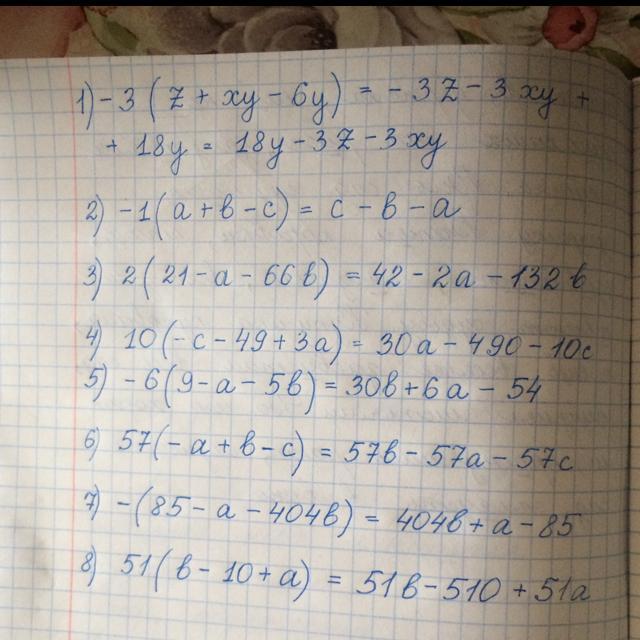 1) -3 (z + xy - 6y) = - 3z - 3xy +
+ 18y = 18y - 3z - 3xy
2) -1(a + b - c) = c - b - a
3) 2(21 - a - 66b) = 42 - 2a - 132b
4) 10(-c - 49 + 3a) = 30a - 490 - 10c
5) -6(9 - a - 5b) = 30b + 6a - 54
6) 57(-a + b - c) = 57b - 57a - 57c
7) -(85 - a - 404b) = 404b + a - 85
8) 51(b - 10 + a) = 51b - 510 + 51a